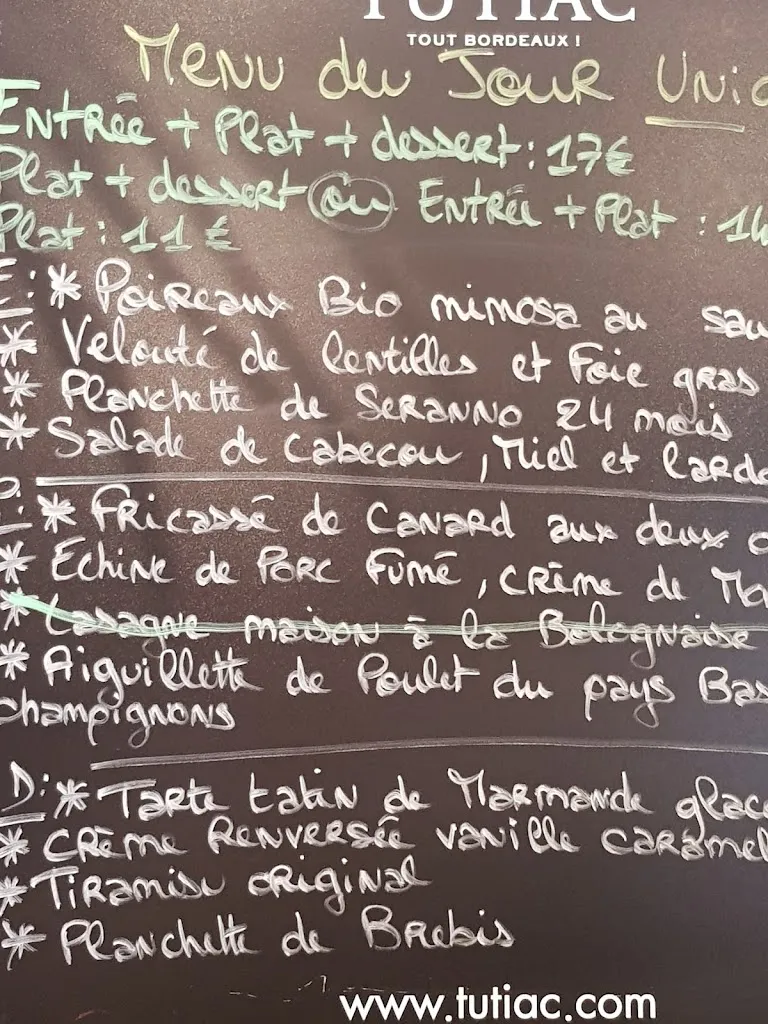 TUTIAC
TOUT BORDEAUX !
Menu du Jour Uni
Entrée + Plat + dessert : 17€
Plat + dessert ou Entrée + Plat : 14
Plat : 11 €
E : * Poireaux Bio mimosa au sau
* Velouté de lentilles et Foie gras
* Planchette de Seranno 24 mois
* Salade de Cabecou, Miel et lardo
P : * Fricassé de Canard aux deux
* Echine de Porc Fumé, crème de Ma
* Lasagne maison à la Bolognaise
* Aiguillette de Poulet du pays Bas
champignons
D : * Tarte tatin de Marmande glace
* Crème Renversée vanille caramel
* Tiramisu original
* Planchette de Brebis
www.tutiac.com